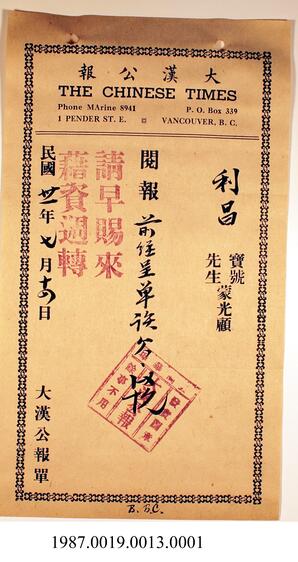 報公漢大
THE CHINESE TIMES
Phone MArine 8941
P. O. Box 339
1 PENDER ST. E.
VANCOUVER, B. C.
利昌
寶號
先生
蒙光顧
閱報
前任呈單
請早賜來
藉資週轉
民國卅一年七月十四日
大漢公報單
B.B.C.
1987.0019.0013.0001